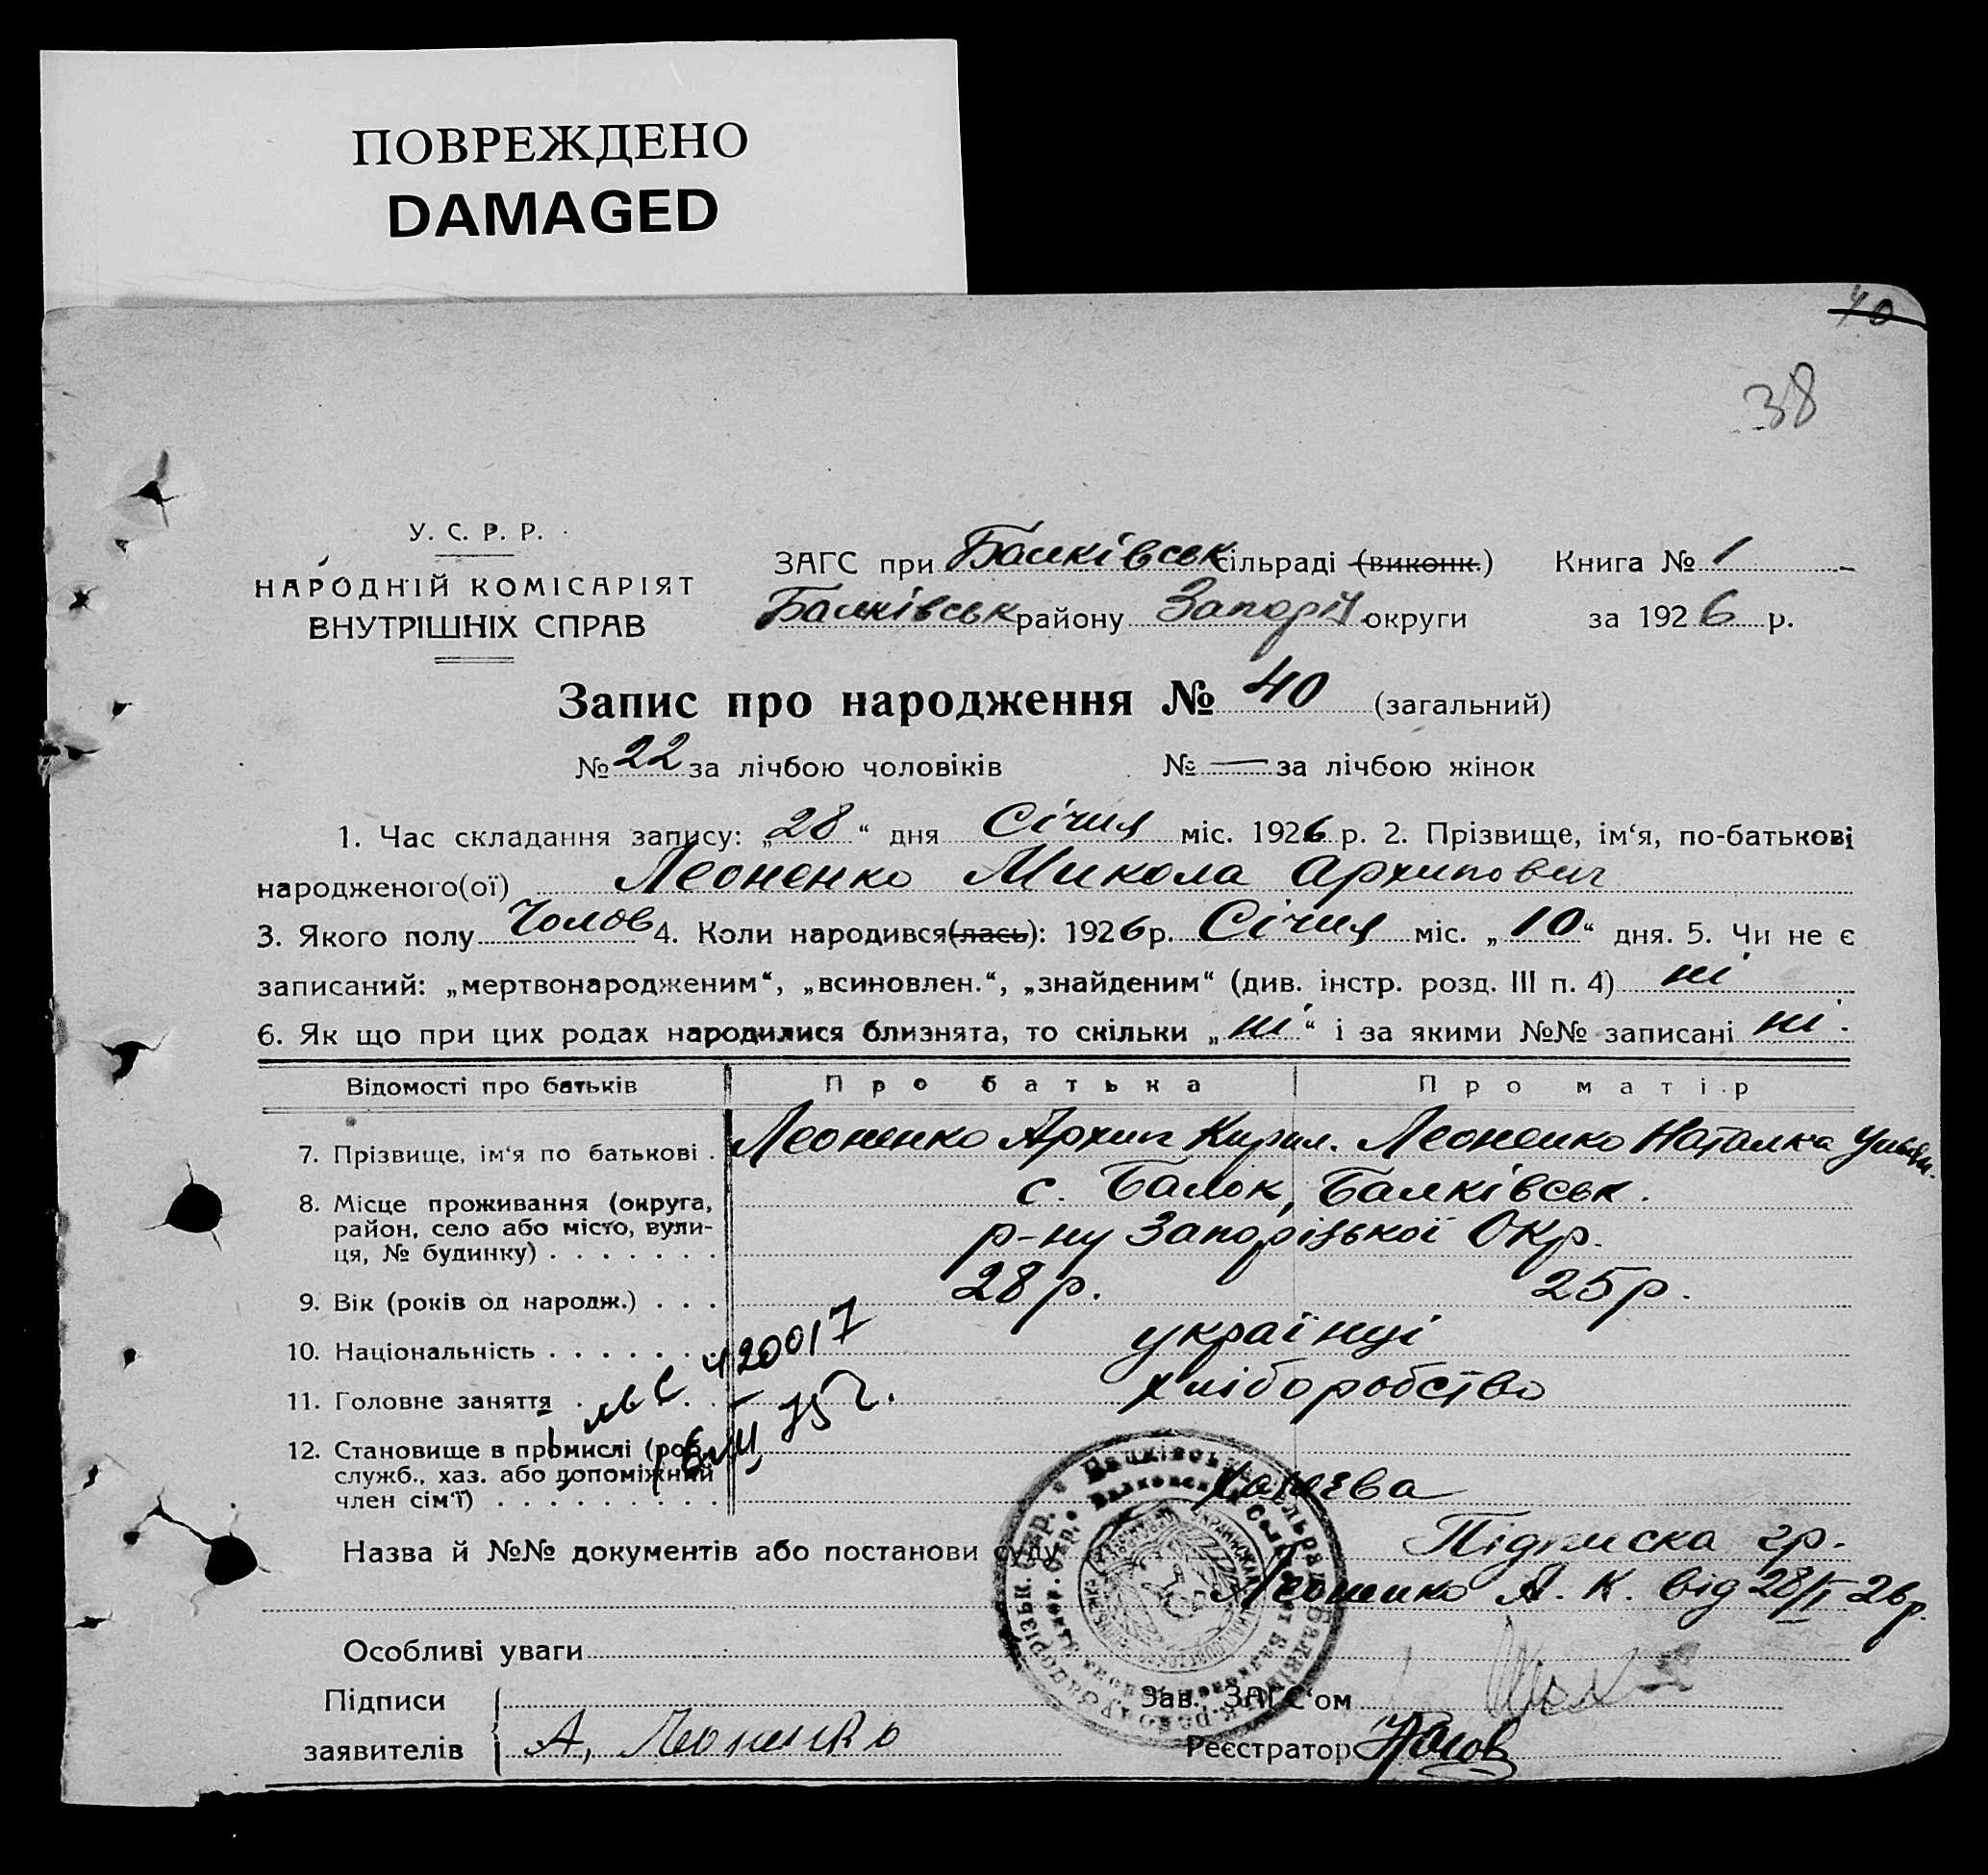 ПОВРЕЖДЕНО
DAMAGED
40
38
У. С. Р. Р.
НАРОДНІЙ КОМІСАРІЯТ
ВНУТРІШНІХ СПРАВ
ЗАГС при Балківськ сільраді (виконк.) Книга № 1
Балківськ району Запоріз округи за 1926 р.
Запис про народження № 40 (загальний)
№ 22 за лічбою чоловіків № — за лічбою жінок
1. Час складання запису: „28“ дня Січня міс. 1926 р. 2. Прізвище, ім‘я, по-батькові
народженого(ої) Леоненко Микола Архипович
3. Якого полу Чолов 4. Коли народився(лась): 1926 р. Січня міс. „10“ дня. 5. Чи не є
записаний: „мертвонародженим“, „всиновлен.“, „знайденим“ (див. інстр. розд. III п. 4) ні
6. Як що при цих родах народилися близнята, то скільки „ні“ і за якими №№ записані ні.
Відомості про батьків Про батька Про матір
7. Прізвище, ім‘я по батькові . Леоненко Архип Кирил. Леоненко Наталка
8. Місце проживання (округа, с. Балок, Балківськ.
район, село або місто, вули-
ця, № будинку) . . . . . . . р-ну Запорізької Окр.
9. Вік (років од народж.) . . . 28 р. 25 р.
10. Національність . . . . . . . українці
420017
11. Головне заняття . . . . . хліборобство
75 г.
12. Становище в промислі (роб.,
служб., хаз. або допоміжний
член сім‘ї) . . . . . . . . . .
Назва й №№ документів або постанови суду Підписка гр.
Леоненко А. К. від 28/I 26 р.
Особливі уваги
Підписи Зав. ЗАГС‘ом
заявителів А, Леоненко Реєстратор